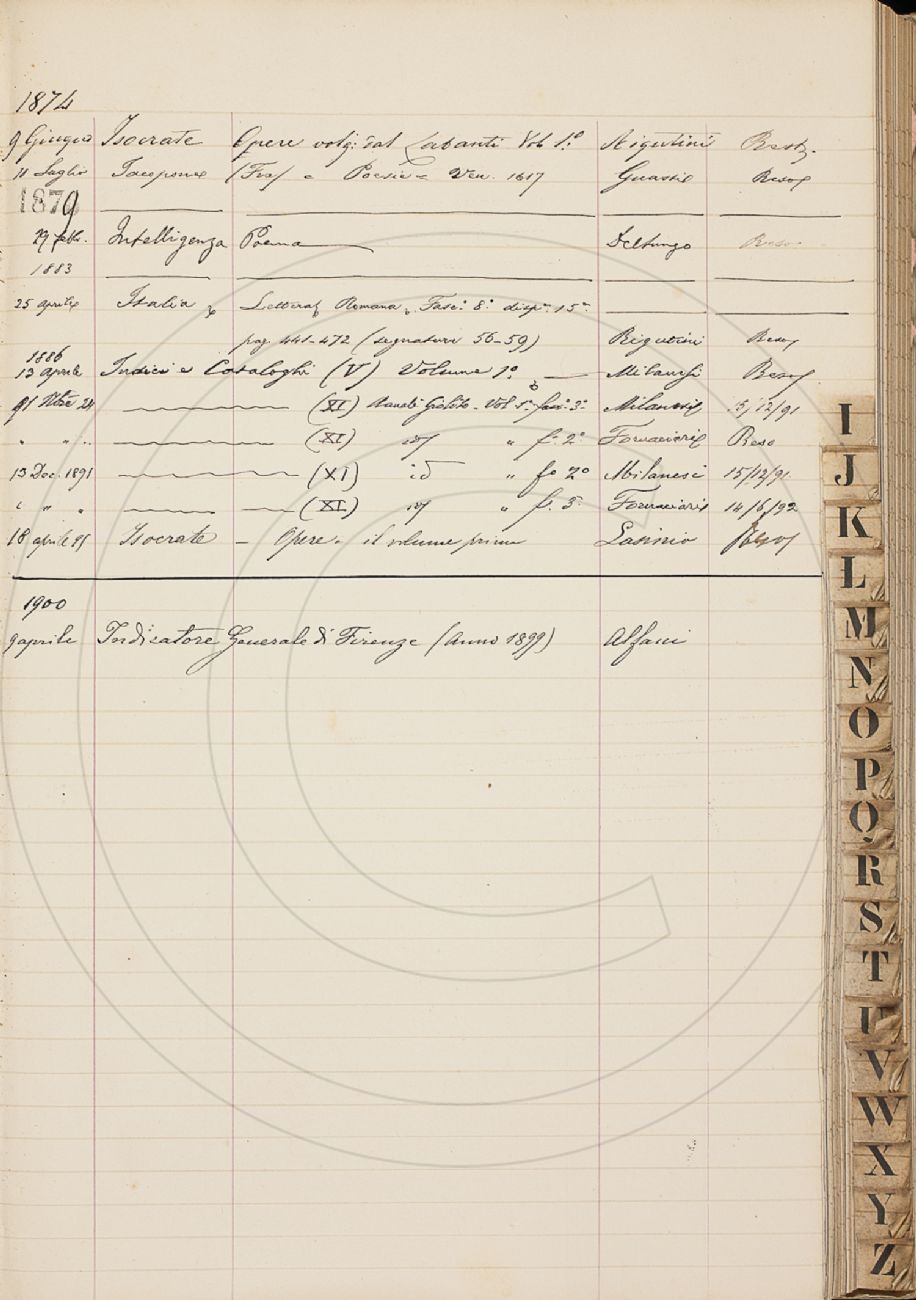 1874
9 Giugno Isocrate Opere volg: dal Labanti Vol 1.º Rigutini Reso
11 Luglio Iacopone (Fra) = Poesie = Ven. 1617 Guasti Reso
1879
29 febbr. Intelligenza Poema Del Lungo Reso
1883
25 aprile Italia Letterat. Romana. Fasc. 8.º disp. 15
pag. 441-472 (segnature 56-59) Rigutini Reso
1886
13 aprile Indici e Cataloghi (V) Volume 1º Milanesi Reso
91 24 (XI) Vol 1º fasc. 3º Milanesi 15/12/91
" " " (XI) id " f. 2º Fornaciari Reso
13 Dec. 1891 (XI) id " fº 2º Milanesi 15/12/91
" " " (XI) id " f. 3º Fornaciari 14/6/92
18 aprile 95 Isocrate - Opere - il volume primo Lasinio Reso
1900
9 aprile Indicatore Generale di Firenze (Anno 1899) Alfani
I
J
K
L
M
N
O
P
Q
R
S
T
U
V
W
X
Y
Z